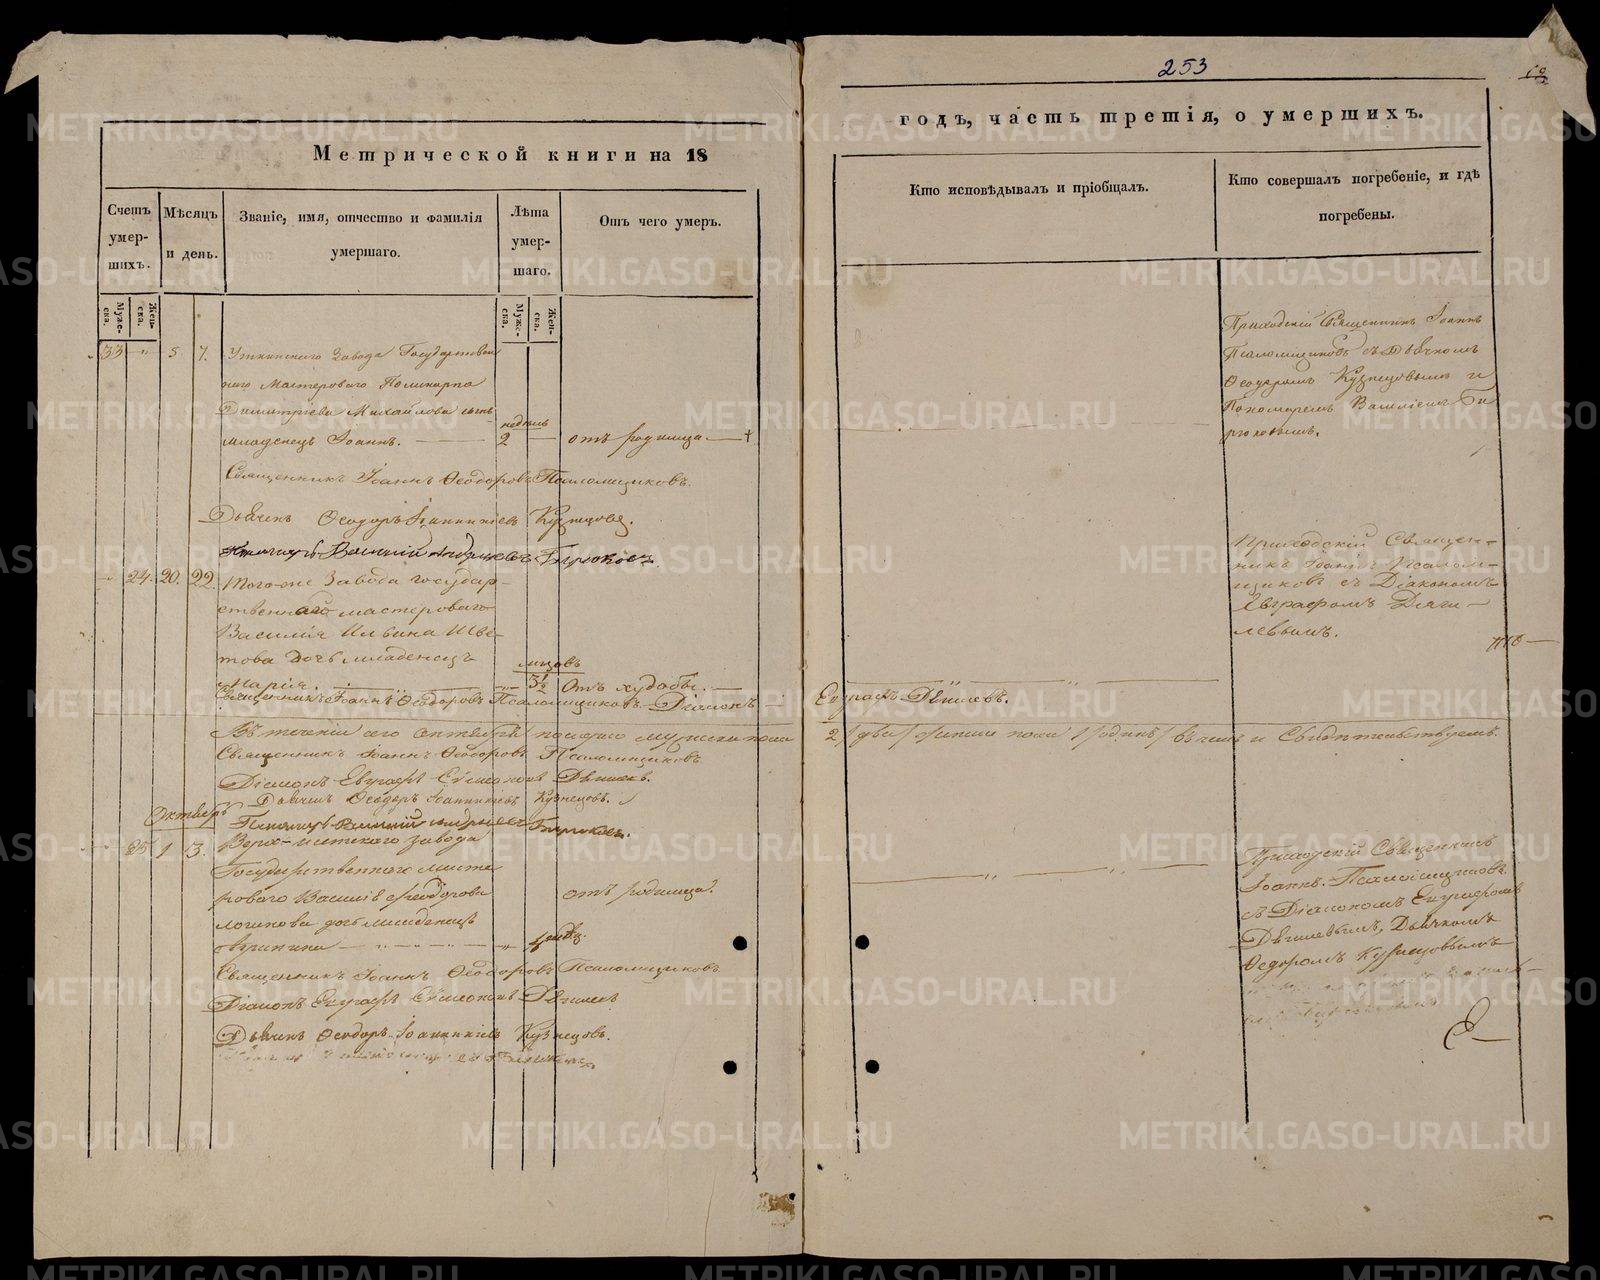 253
Метрической книги на 18
годъ, часть третія, о умершихъ.
Счетъ умер-шихъ.
Мѣсяцъ и день.
Званіе, имя, отчество и фамилія умершаго.
Лѣта умер-шаго.
Отъ чего умеръ.
Кто исповѣдывалъ и пріобщалъ.
Кто совершалъ погребеніе, и гдѣ погребены.
Муже-ска.
Жен-ска.
Муже-ска.
Жен-ска.
33 5. 7. Уткинскаго Завода Государствен
наго Мастероваго Поликарпа
Димитріева Михайлова сынъ
младенецъ Іоаннъ.
недѣль
2
отъ родимца
Приходскій Священникъ Іоаннъ
Псаломщиковъ съ Дьячкомъ
Ѳеодоромъ Кузнецовымъ и
Пономаремъ Василіемъ Би
рюковымъ.
Священникъ Іоаннъ Ѳеодоровъ Псаломщиковъ.
Дьячекъ Ѳеодоръ Іоанникіевъ Кузнецовъ.
Пономарь Василій Андреевъ Бирюковъ.
24. 20. 22. Того-же Завода государ-
ственнаго мастероваго
Василія Ильина
това дочь младенецъ
Марія.
мѣсяцовъ
3½
Отъ худобы.
Приходскій Священ-
никъ Іоаннъ Псалом-
щиковъ съ Діакономъ
Евграфомъ Дяги-
левымъ.
Священникъ Іоаннъ Ѳеодоровъ Псаломщиковъ. Діаконъ
Евграфъ
Въ теченіи сего Сентября померло мужеска пола
2 /два/ женска пола 1 /одинъ/ въ чемъ и Свидѣтельствуемъ.
Священникъ Іоаннъ Ѳеодоровъ Псаломщиковъ
Діаконъ Евграфъ
Дьячекъ Ѳеодоръ Іоанникіевъ Кузнецовъ.
Пономарь Василій Андреевъ Бирюковъ.
Октябрь
25 1 3. Верх-Исетскаго завода
Государственнаго масте
роваго Василія Ѳеодорова
Логинова дочь младенецъ
отъ родимца.
Приходскій Священникъ
Іоаннъ Псаломщиковъ
съ Діакономъ Евграфомъ
Дьячкомъ
Ѳедоромъ Кузнецовымъ
Священникъ Іоаннъ Ѳеодоровъ Псаломщиковъ
Діаконъ Евграфъ
Дьячекъ Ѳеодоръ Іоанникіевъ Кузнецовъ.
METRIKI.GASO-URAL.RU